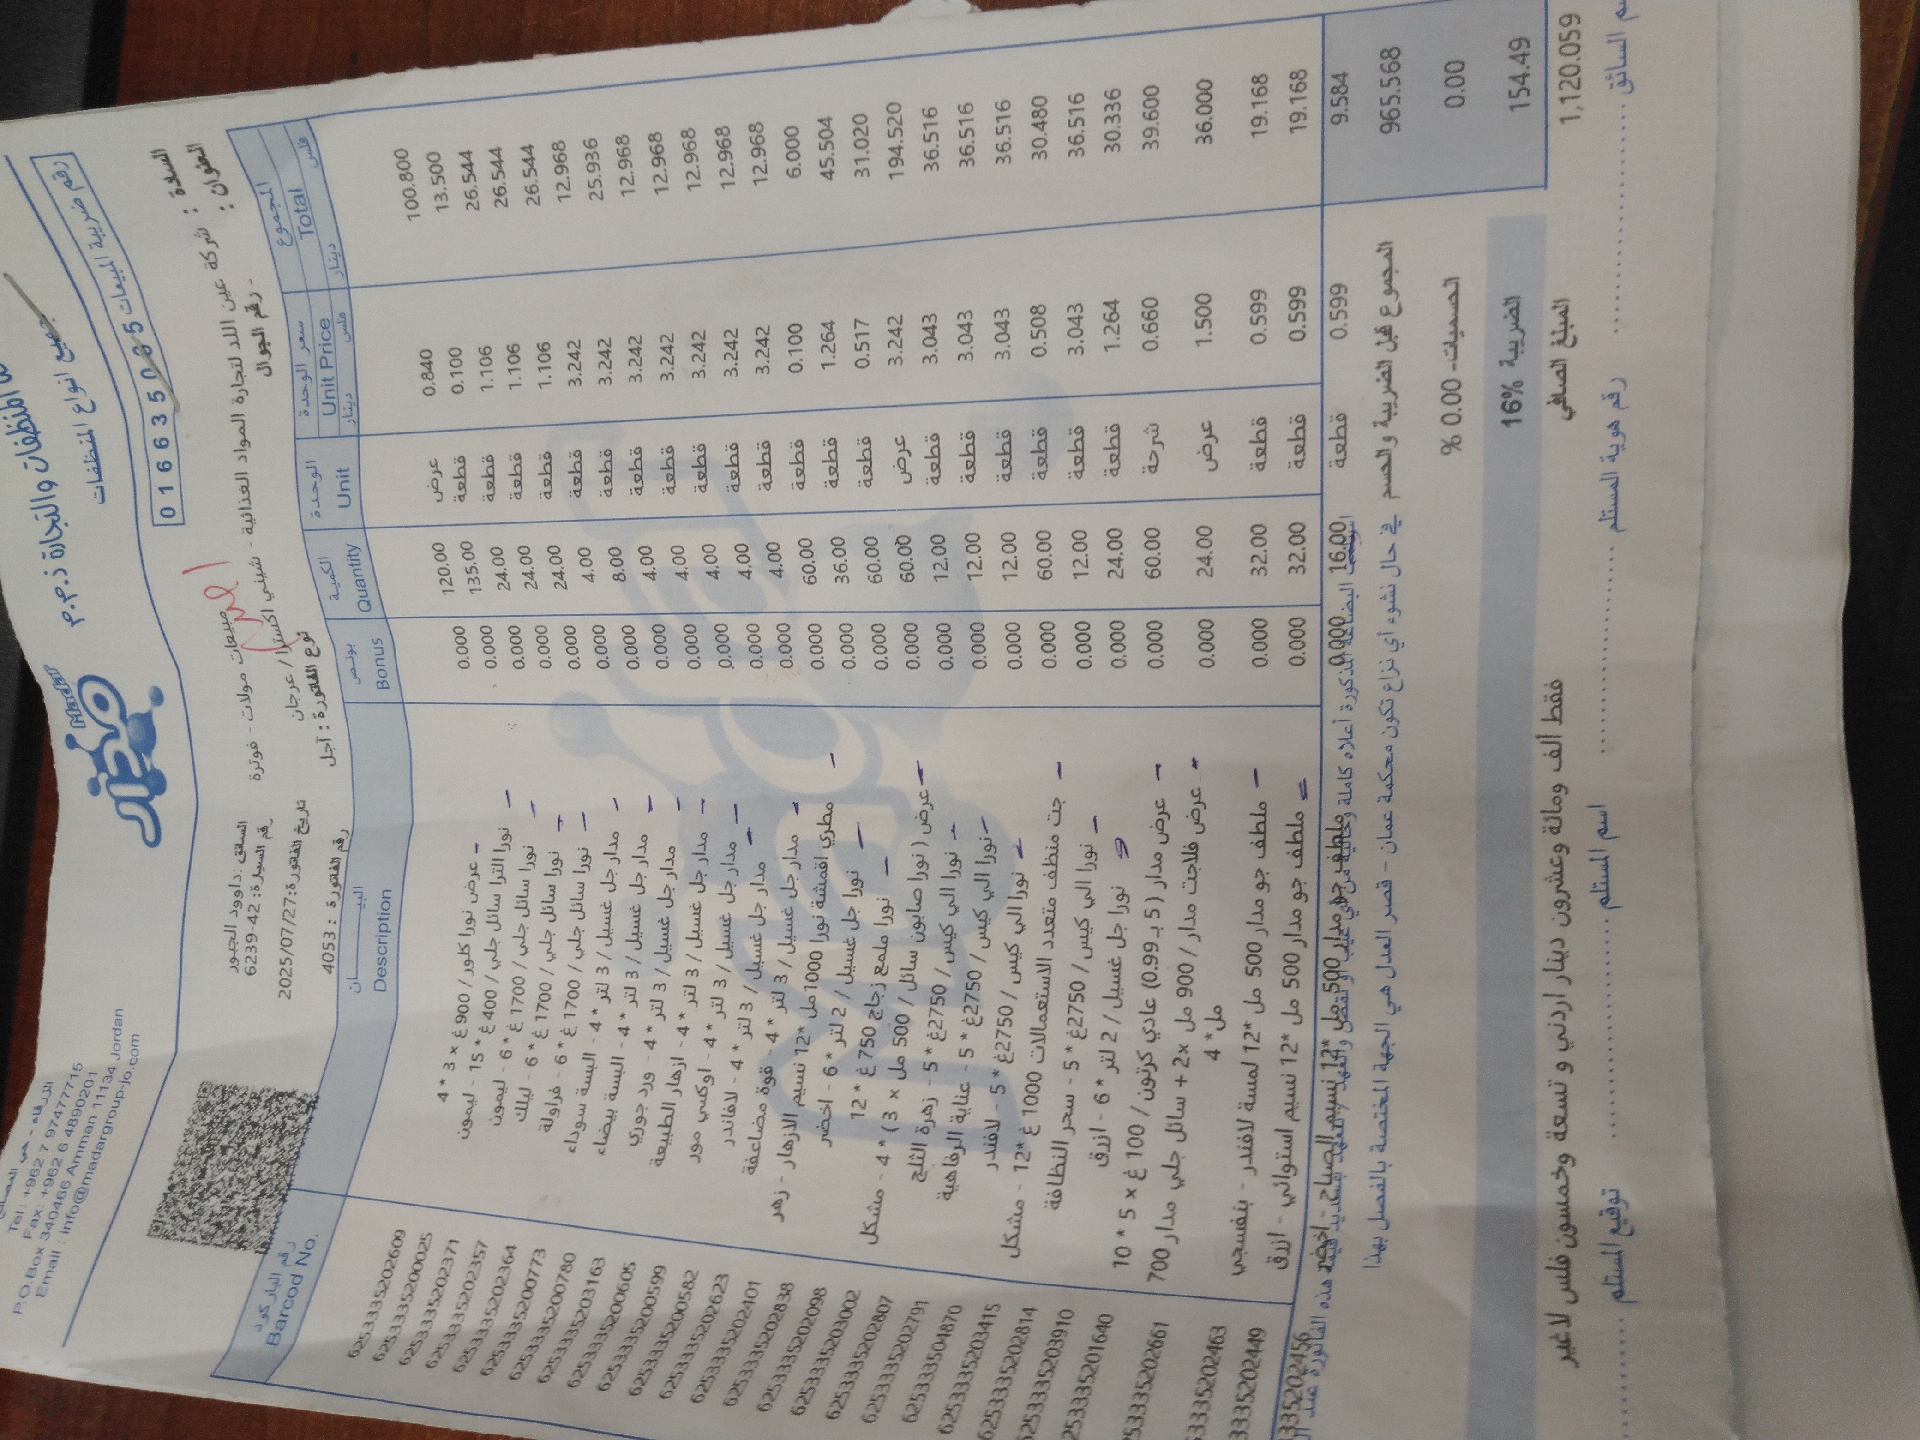 المنظفات والتجارة ذ.م.م
جميع انواع المنظفات
مدار
Madar
Tel: +962 7 97477715
Fax: +962 6 4890201
P.O.Box 340466 Amman 11134 Jordan
Email : Info@madargroup-jo.com
رقم ضريبة المبيعات
0 1 6 6 3 5
السادة : شركة عين اللد لتجارة المواد الغذائية - شيني اكسترا / عرجان
العنوان : - رقم الجوال
مبيعات مولات - فوترة
نوع الفاتورة : آجل
السائق: داوود الجبور
رقم السيارة: 42-6239
تاريخ الفاتورة: 2025/07/27
رقم الفاتورة : 4053
رقم الباركود البيـــــان بونص الكمية الوحدة سعر الوحدة المجموع
Barcod No. Description Bonus Quantity Unit Unit Price Total
دينار فلس دينار فلس
6253335202609 عرض نورا كلور / 900 غ x 3 * 4 120.00 عرض 0.840 100.800
6253335200025 نورا الترا سائل جلي / 400 غ * 15 - ليمون 0.000 135.00 قطعة 0.100 13.500
6253335202371 نورا سائل جلي / 1700 غ * 6 - ليمون 0.000 24.00 قطعة 1.106 26.544
6253335202357 نورا سائل جلي / 1700 غ * 6 - ليلك 0.000 24.00 قطعة 1.106 26.544
6253335202364 نورا سائل جلي / 1700 غ * 6 - فراولة 0.000 24.00 قطعة 1.106 26.544
6253335200773 مدار جل غسيل / 3 لتر * 4 - البسة سوداء 0.000 4.00 قطعة 3.242 12.968
6253335200780 مدار جل غسيل / 3 لتر * 4 - البسة بيضاء 0.000 8.00 قطعة 3.242 25.936
6253335203163 مدار جل غسيل / 3 لتر * 4 - ورد جوري 0.000 4.00 قطعة 3.242 12.968
6253335200605 مدار جل غسيل / 3 لتر * 4 - ازهار الطبيعة 0.000 4.00 قطعة 3.242 12.968
6253335200599 مدار جل غسيل / 3 لتر * 4 - اوكسي مور 0.000 4.00 قطعة 3.242 12.968
6253335200582 مدار جل غسيل / 3 لتر * 4 - لافاندر 0.000 4.00 قطعة 3.242 12.968
6253335202623 مدار جل غسيل / 3 لتر * 4 - قوة مضاعفة 0.000 4.00 قطعة 3.242 12.968
6253335202401 مطري اقمشة نورا 1000 مل *12 نسيم الازهار - زهر 0.000 60.00 قطعة 0.100 6.000
6253335202838 نورا جل غسيل / 2 لتر * 6 - اخضر 0.000 36.00 قطعة 1.264 45.504
6253335202098 نورا ملمع زجاج 750 غ * 12 0.000 60.00 قطعة 0.517 31.020
6253335203002 عرض ( نورا صابون سائل / 500 مل x 3) * 4 - مشكل 0.000 60.00 عرض 3.242 194.520
6253335202807 نورا الي كيس / 2750غ * 5 - زهرة الثلج 0.000 12.00 قطعة 3.043 36.516
6253335202791 نورا الي كيس / 2750غ * 5 - عناية الرفاهية 0.000 12.00 قطعة 3.043 36.516
6253333504870 نورا الي كيس / 2750غ * 5 - لافندر 0.000 12.00 قطعة 3.043 36.516
6253335203415 جت منظف متعدد الاستعمالات 1000 غ *12 - مشكل 0.000 60.00 قطعة 0.508 30.480
6253335202814 نورا الي كيس / 2750غ * 5 - سحر النظافة 0.000 12.00 قطعة 3.043 36.516
6253335203910 نورا جل غسيل / 2 لتر * 6 - ازرق 0.000 24.00 قطعة 1.264 30.336
253335201640 عرض مدار ( 5 بـ 0.99) عادي كرتون / 100 غ x 5 * 10 0.000 60.00 شرحة 0.660 39.600
253335202661 عرض فلاجت مدار / 900 مل x2 + سائل جلي مدار 700 مل* 4 0.000 24.00 عرض 1.500 36.000
33335202463 ملطف جو مدار 500 مل *12 لمسة لافندر - بنفسجي 0.000 32.00 قطعة 0.599 19.168
3335202449 ملطف جو مدار 500 مل *12 نسيم استوائي - ازرق 0.000 32.00 قطعة 0.599 19.168
335202456 ملطف جو مدار 500 مل *12 نسيم الصباح - اخضر 0.000 16.00 قطعة 0.599 9.584
في حال نشوء اي نزاع تكون محكمة عمان - قصر العدل هي الجهة المختصة بالفصل بهذا
المجموع قبل الضريبة والحسم 965.568
الحسميات- 0.00 % 0.00
الضريبة 16% 154.49
المبلغ الصافي 1,120.059
فقط الف ومائة وعشرون دينار اردني و تسعة وخمسون فلس لاغير
توقيع المستلم اسم المستلم رقم هوية المستلم السائق